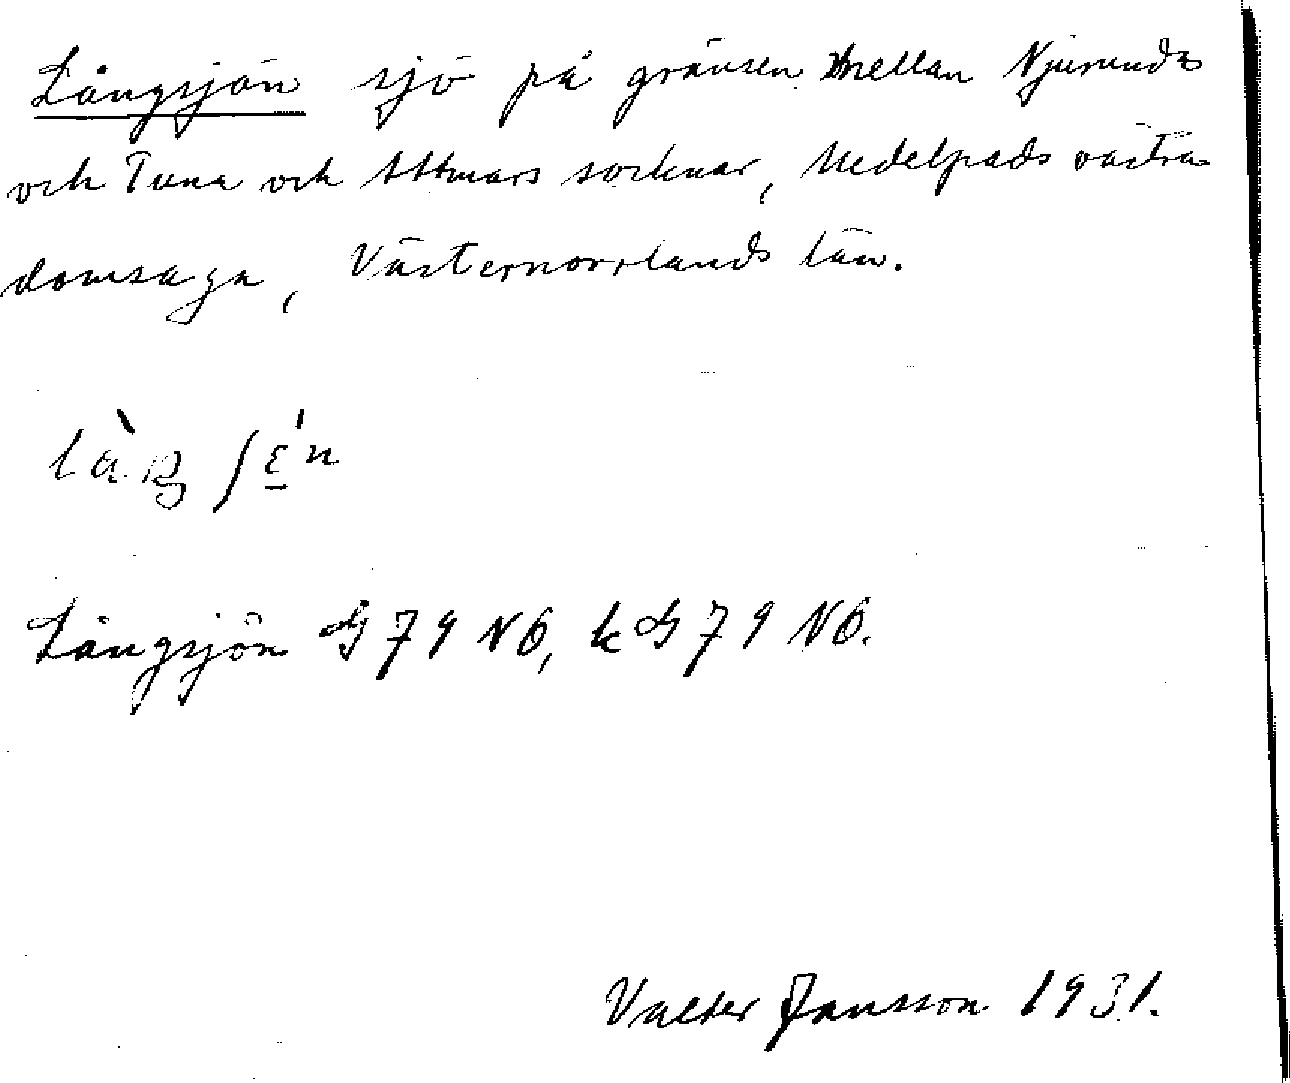 Långsjön sjö på gränsen mellan Njurunda
och Tuna och Attmars socknar, Medelpads västra
domsaga, Västernorrlands län.
Långsjön G 79 NÖ, k G 79 NÖ.
Valter Jansson 1931.